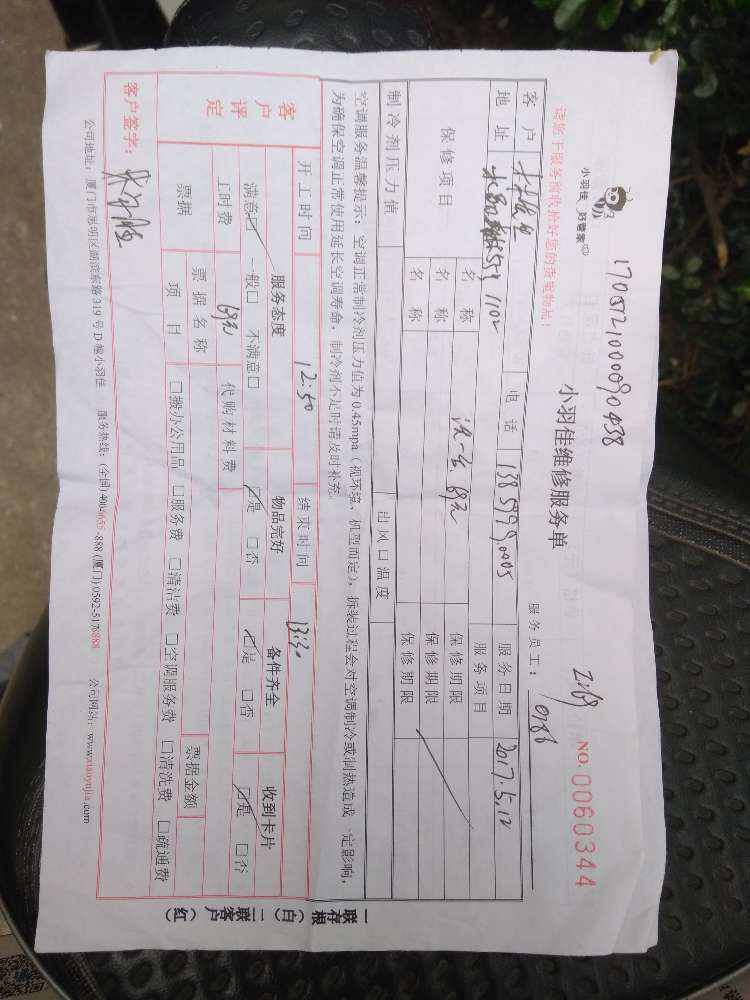 170512100090438
小羽佳 好管家
小羽佳维修服务单
NO. 0060344
请您于服务前收拾好您的贵重物品!
服务员工: 0786
客户 电话 13859990005 服务日期 2017.5.12
地址 1102 服务项目
保修项目 名称 洗一台 69元 保修期限
名称 保修期限
名称 保修期限
制冷剂压力值 出风口温度
空调服务温馨提示:空调正常制冷剂压力值为0.45mpa(视环境、机型而定),拆装过程会对空调制冷或制热造成一定影响,
为确保空调正常使用延长空调寿命,制冷剂不足时请及时补充。
开工时间 12:50 结束时间 13:30
客户评定 服务态度 物品完好 备件齐全 收到卡片
满意☑ 一般□ 不满意□ ☑是 □否 ☑是 □否 ☑是 □否
工时费 69元 代购材料费
票据 票据名称 票据金额
项目 □搬办公用品 □服务费 □清洁费 □空调服务费 □清洗费 □疏通费
客户签字:
公司地址:厦门市思明区湖滨东路319号D幢小羽佳 服务热线:(全国)4004655-888 (厦门)0592-5178888 公司网站:www.xiaoyujia.com
一联存根(白) 二联客户(红)